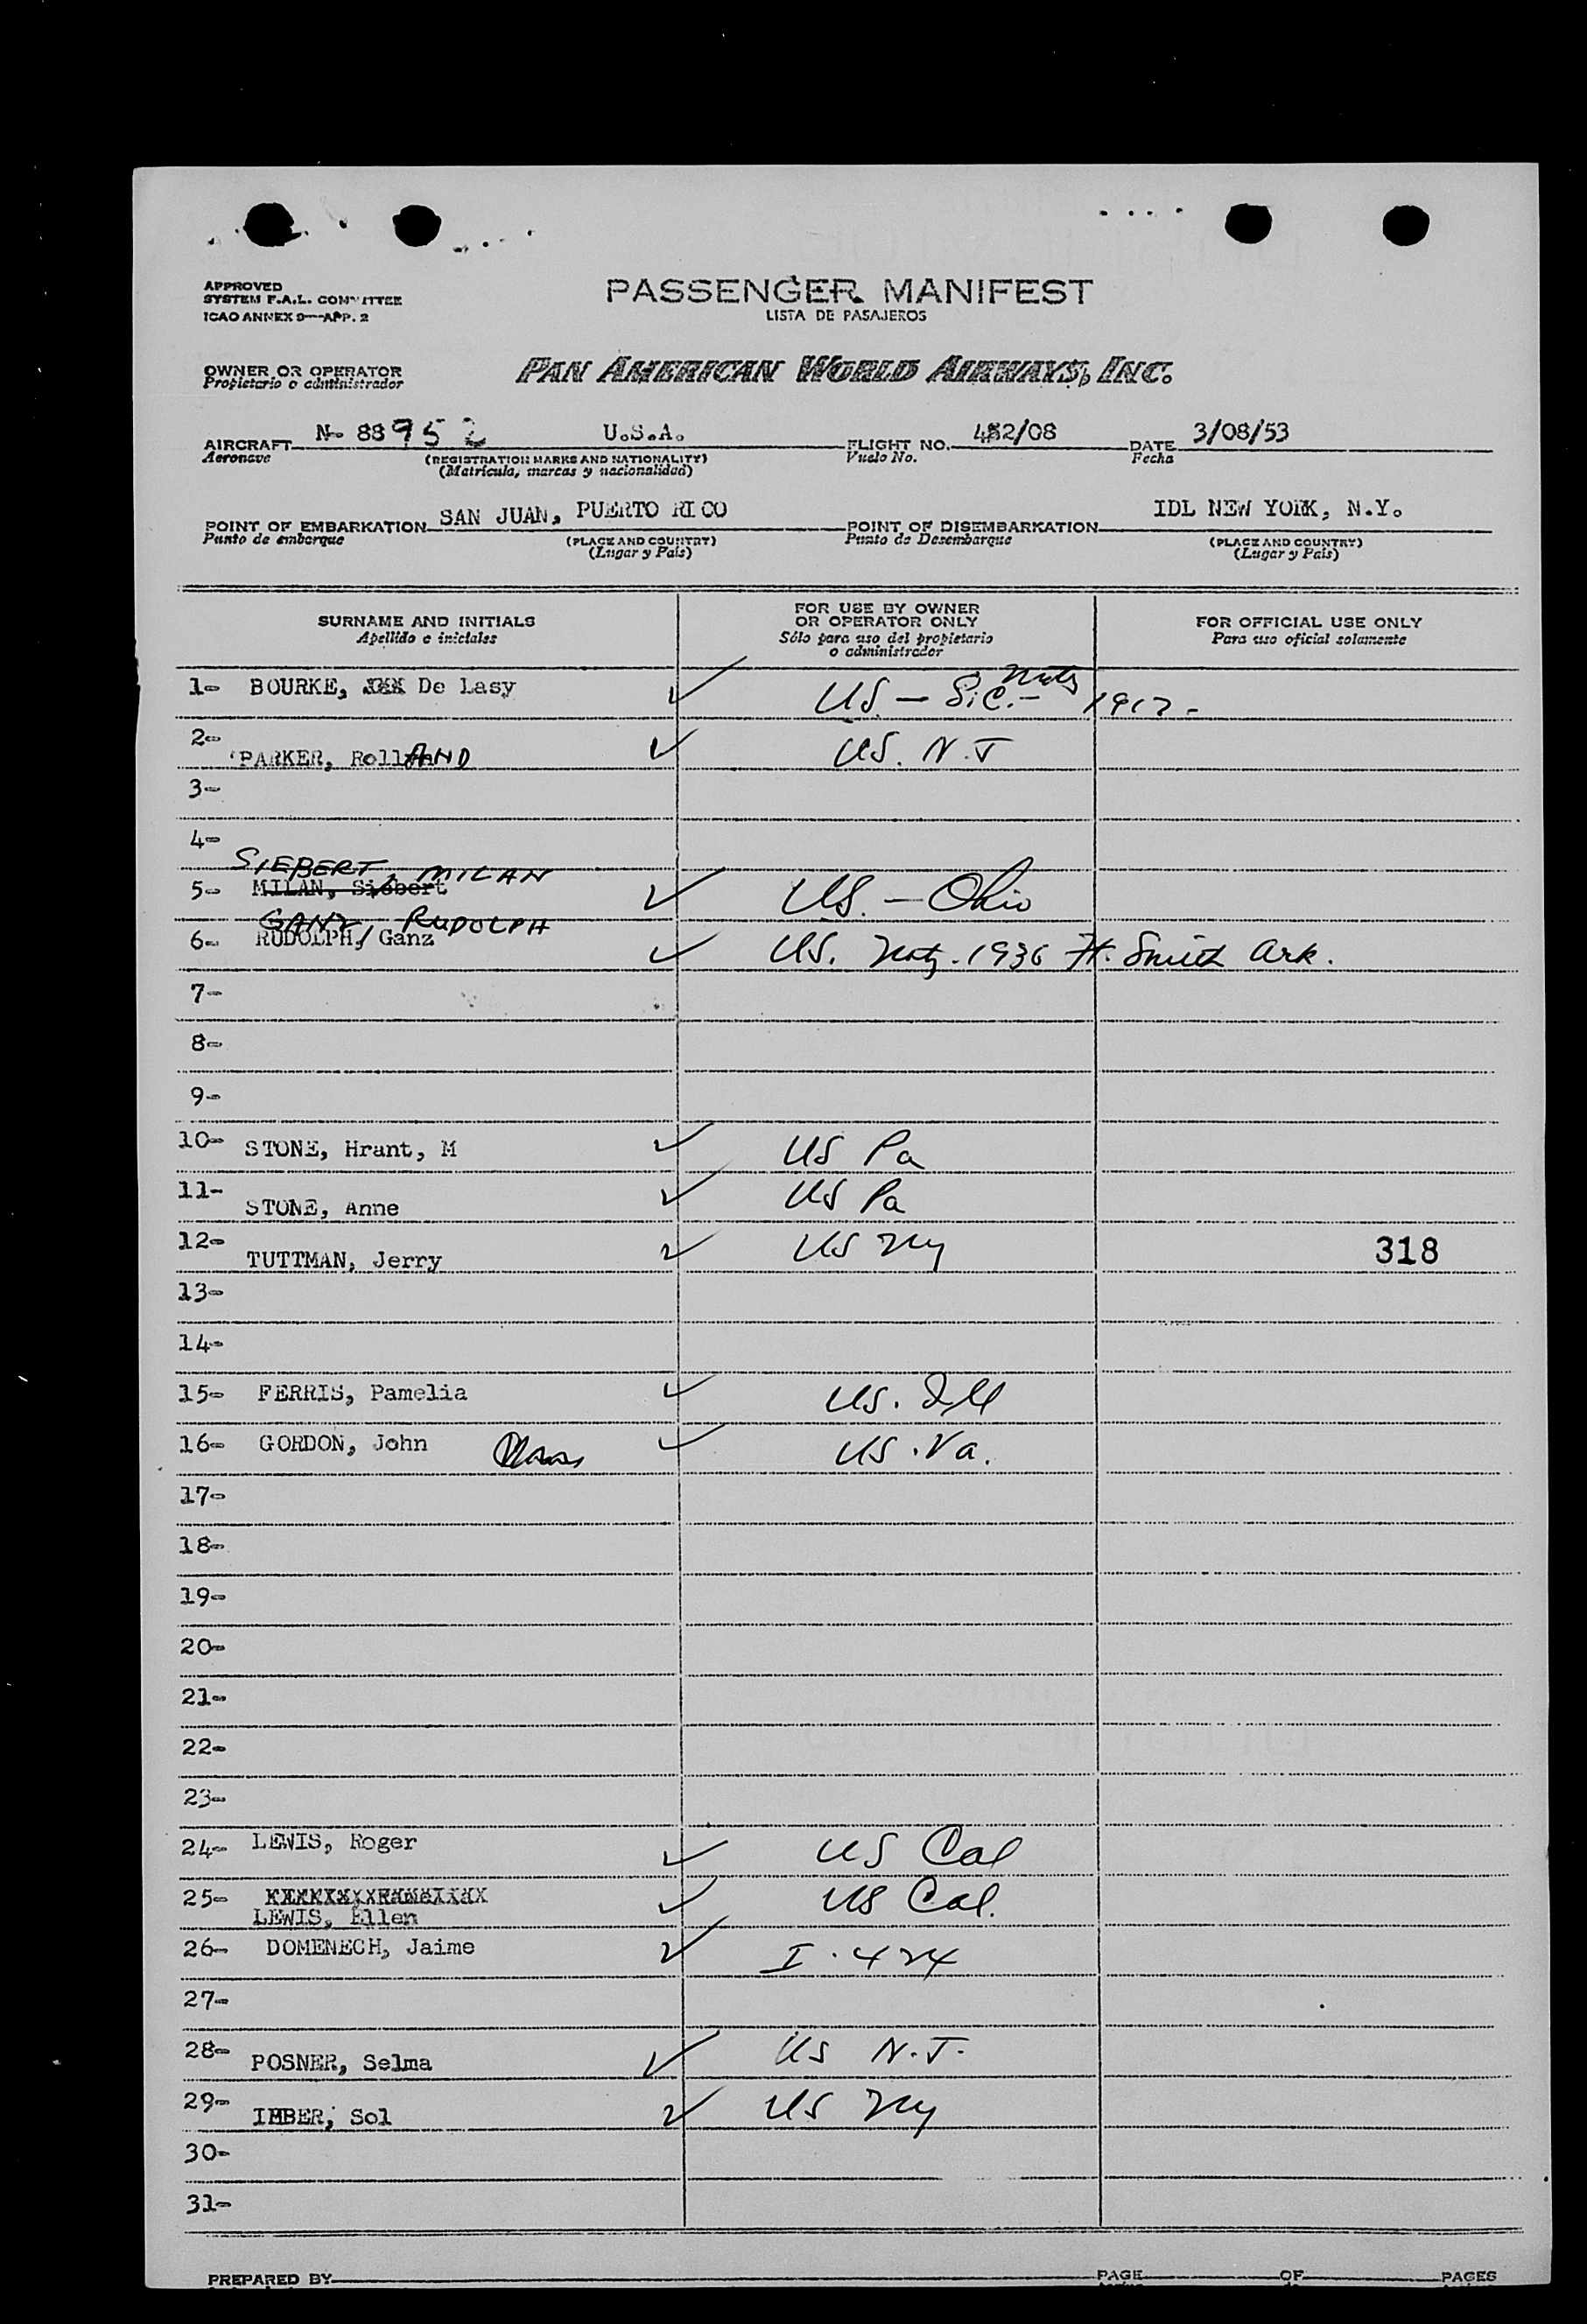 APPROVED
SYSTEM F.A.L. COMMITTEE
ICAO ANNEX 9—APP. 2
PASSENGER MANIFEST
LISTA DE PASAJEROS
OWNER OR OPERATOR
Propietario o administrador
PAN AMERICAN WORLD AIRWAYS, INC.
AIRCRAFT N- 88952 U.S.A. FLIGHT NO. 432/08 DATE 3/08/53
Aeronave (REGISTRATION MARKS AND NATIONALITY) Vuelo No. Fecha
(Matrícula, marcas y nacionalidad)
POINT OF EMBARKATION SAN JUAN, PUERTO RICO POINT OF DISEMBARKATION IDL NEW YORK, N.Y.
Punto de embarque (PLACE AND COUNTRY) Punto de Desembarque (PLACE AND COUNTRY)
(Lugar y País) (Lugar y País)
SURNAME AND INITIALS FOR USE BY OWNER OR OPERATOR ONLY FOR OFFICIAL USE ONLY
Apellido e iniciales Sólo para uso del propietario o administrador Para uso oficial solamente
1- BOURKE, De Lasy ✓ US — S.C. - Natz 1917-
2- PARKER, RollAND ✓ US. N.J
3-
4-
SIEBERT, MILAN
5- MILAN, Siebert ✓ US. — Ohio
GANZ, RUDOLPH
6- RUDOLPH, Ganz ✓ US. Natz. 1936 Ft. Smith Ark.
7-
8-
9-
10- STONE, Hrant, M ✓ US Pa
11- STONE, Anne ✓ US Pa
12- TUTTMAN, Jerry ✓ US NY 318
13-
14-
15- FERRIS, Pamelia ✓ US. Ill
16- GORDON, John ✓ US. Va.
17-
18-
19-
20-
21-
22-
23-
24- LEWIS, Roger ✓ US Cal
25- LEWIS, Ellen ✓ US Cal.
26- DOMENECH, Jaime ✓ I-424
27-
28- POSNER, Selma ✓ US N.J.
29- IMBER, Sol ✓ US NY
30-
31-
PREPARED BY PAGE OF PAGES